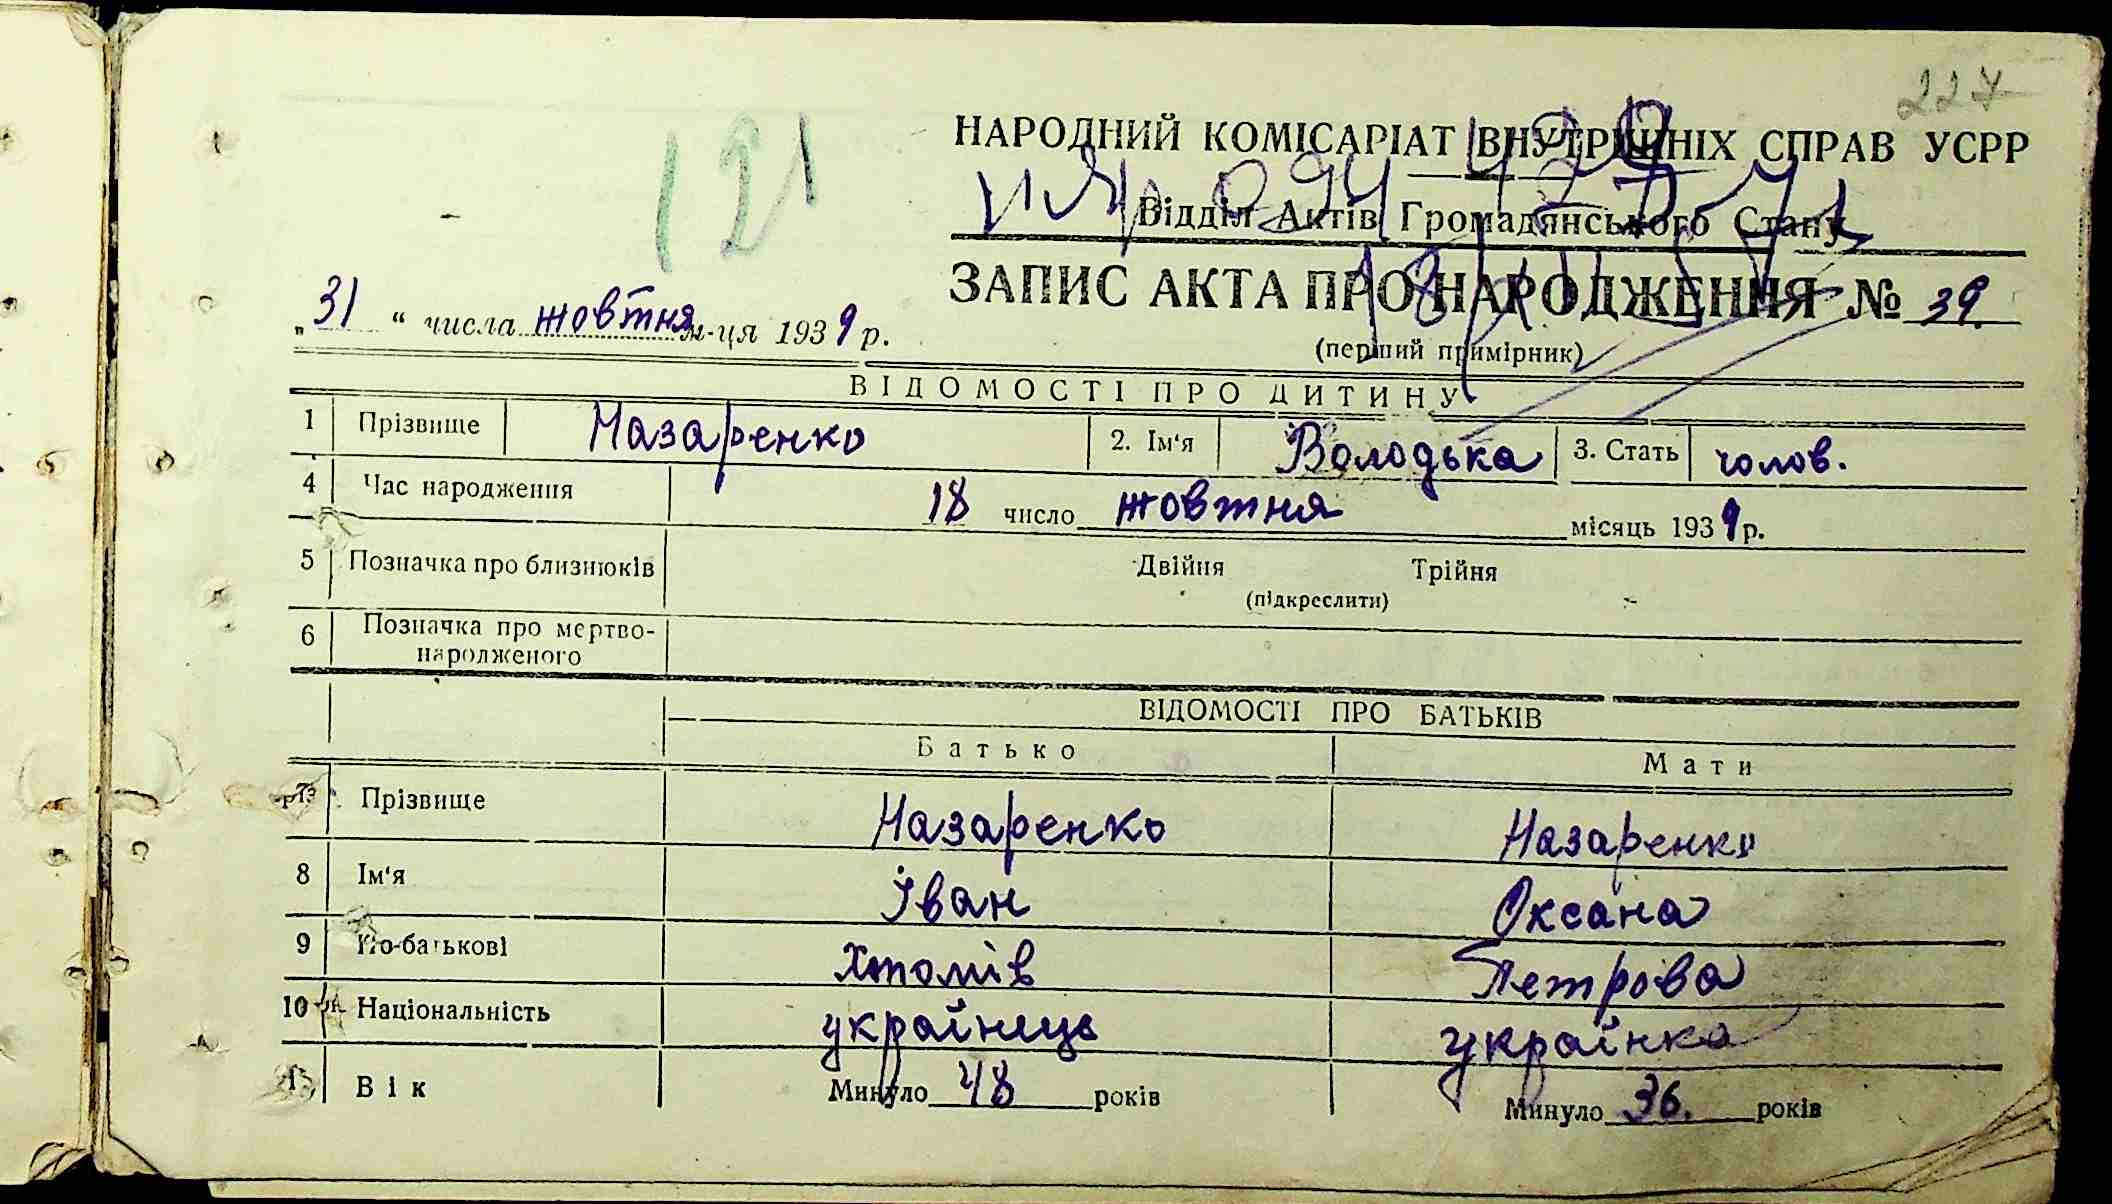 227
121
НАРОДНИЙ КОМІСАРІАТ ВНУТРІШНІХ СПРАВ УСРР
Відділ Актів Громадянського Стану
ЗАПИС АКТА ПРО НАРОДЖЕННЯ № 39.
(перший примірник)
„31“ числа жовтня м-ця 1939 р.
ВІДОМОСТІ ПРО ДИТИНУ
1 Прізвище Назаренко 2. Ім'я Володька 3. Стать чолов.
4 Час народження 18 число жовтня місяць 1939 р.
5 Позначка про близнюків Двійня Трійня
(підкреслити)
6 Позначка про мертво-
народженого
ВІДОМОСТІ ПРО БАТЬКІВ
Батько Мати
7 Прізвище Назаренко Назаренко
8 Ім'я Іван Оксана
9 По-батькові Хтомів Петрова
10 Національність українець українка
11 Вік Минуло 48 років Минуло 36. років